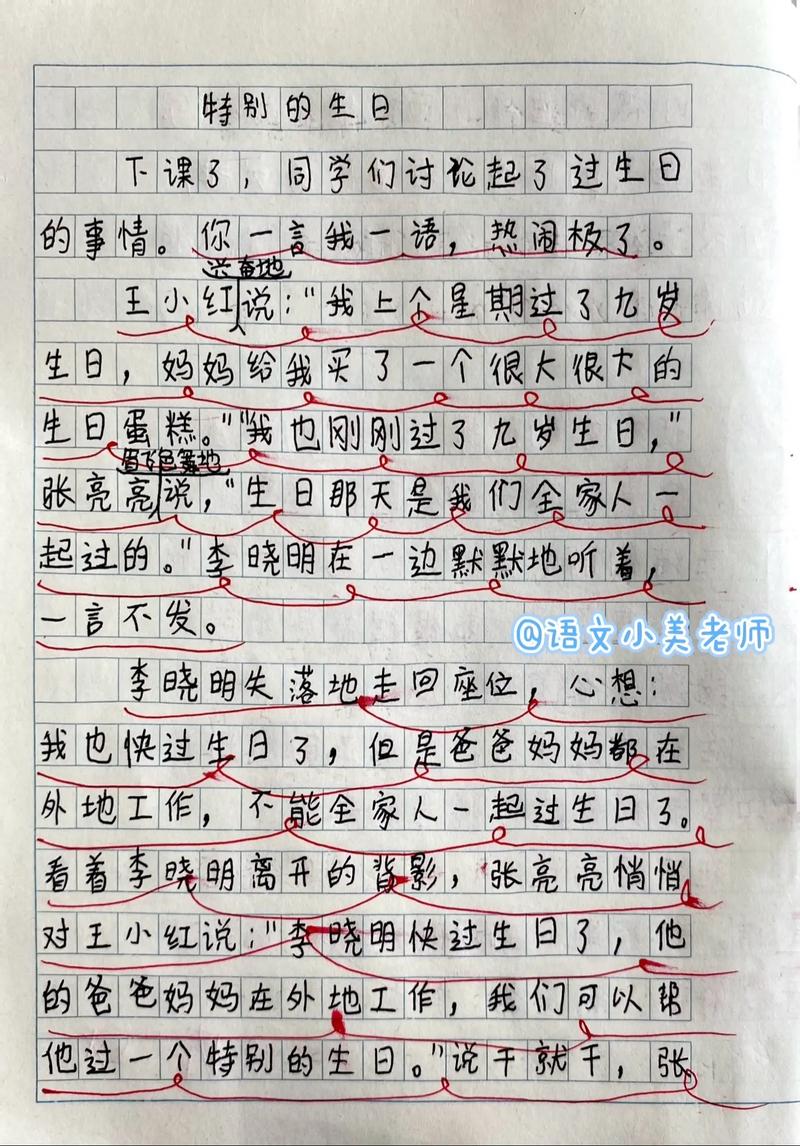 特别的生日
下课了，同学们讨论起了过生日
的事情。你一言我一语，热闹极了。
兴奋地
王小红说："我上个星期过了九岁
生日，妈妈给我买了一个很大很大的
生日蛋糕。""我也刚刚过了九岁生日，"
眉飞色舞地
张亮亮说，"生日那天是我们全家人一
起过的。"李晓明在一边默默地听着，
一言不发。
@语文小美老师
李晓明失落地走回座位，心想：
我也快过生日了，但是爸爸妈妈都在
外地工作，不能全家人一起过生日了。
看着李晓明离开的背影，张亮亮悄悄
对王小红说："李晓明快过生日了，他
的爸爸妈妈在外地工作，我们可以帮
他过一个特别的生日。"说干就干，张